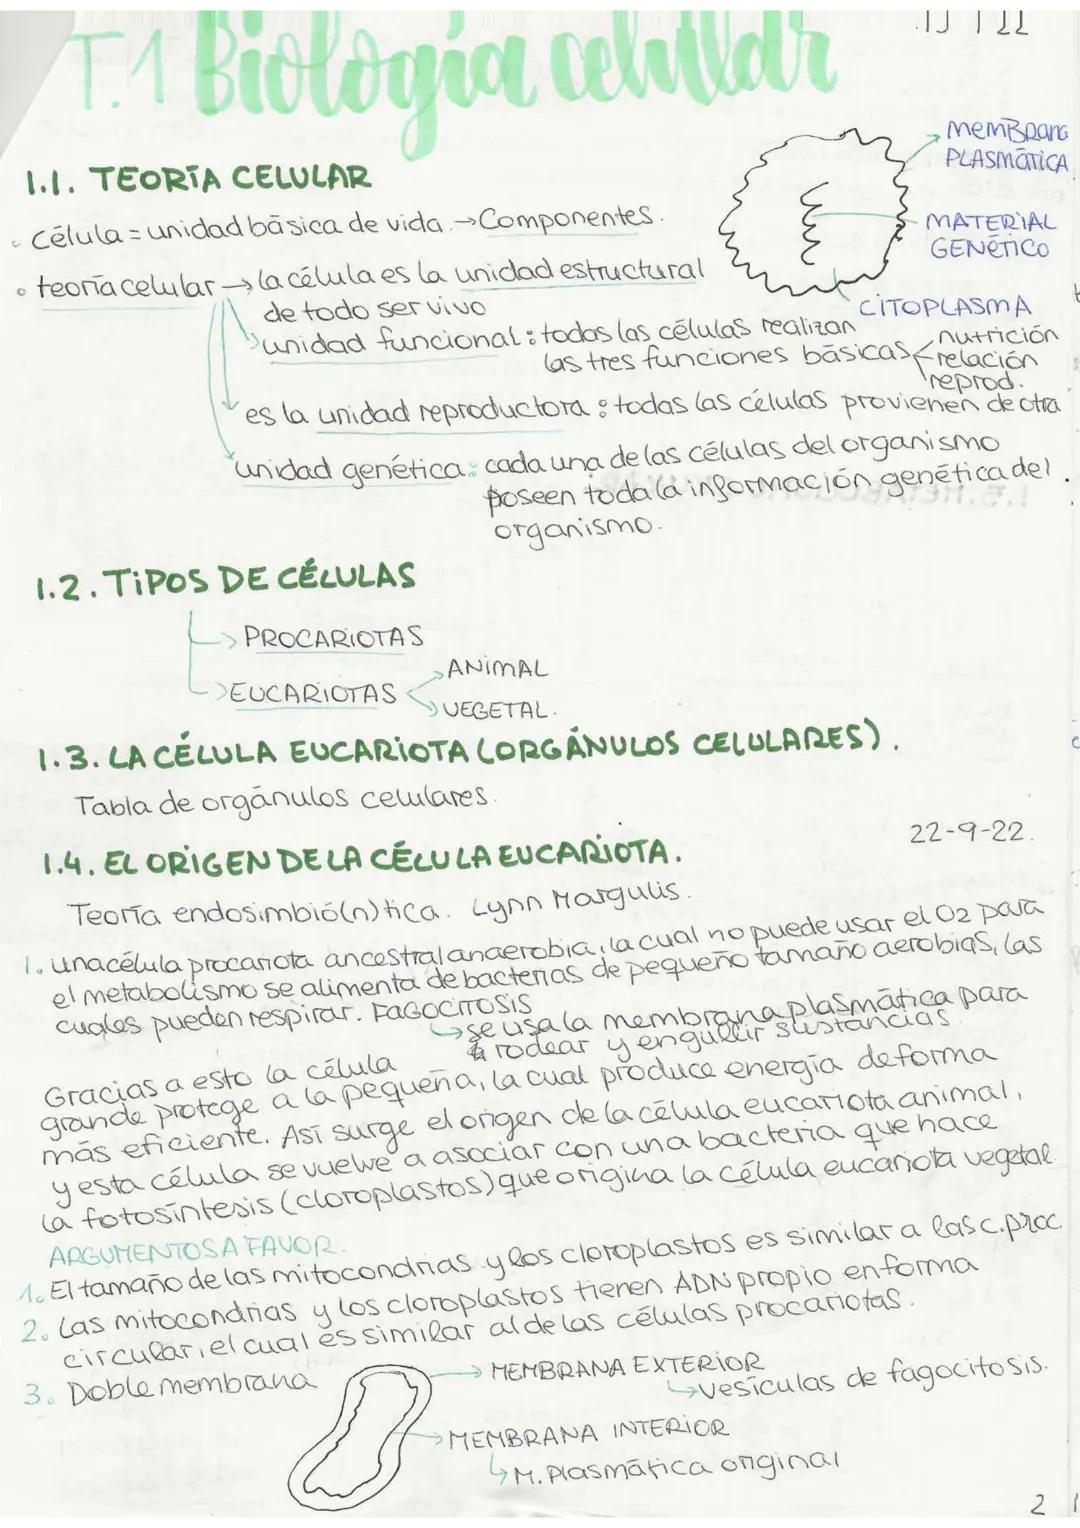 T.1 Biología celular
1.1. TEORÍA CELULAR
MEMBRANA
PLASMÁTICA
• Célula = unidad básica de vida. → Componentes.
MATERIAL
GENÉTICO
CITOPLASMA
• teoría celular → la célula es la unidad estructural
de todo ser vivo
unidad funcional: todas las células realizan
las tres funciones básicas
nutrición
relación
reprod.
es la unidad reproductora: todas las células provienen de otra
unidad genética: cada una de las células del organismo
poseen toda la información genética del
organismo.
1.2. TIPOS DE CÉLULAS
→ PROCARIOTAS
→ EUCARIOTAS
ANIMAL
VEGETAL.
1.3. LA CÉLULA EUCARIOTA (ORGÁNULOS CELULARES).
Tabla de orgánulos celulares.
22-9-22.
1.4. EL ORIGEN DE LA CÉLULA EUCARIOTA.
Teoría endosimbió(n)tica. Lynn Margulis.
1. una célula procariota ancestral anaerobia, la cual no puede usar el O2 para
el metabolismo se alimenta de bacterias de pequeño tamaño aerobias, las
cuales pueden respirar. FAGOCITOSIS
→ se usa la membrana plasmática para
rodear y engullir sustancias.
Gracias a esto la célula
grande protege a la pequeña, la cual produce energía de forma
más eficiente. Así surge el origen de la célula eucariota animal,
y esta célula se vuelve a asociar con una bacteria que hace
la fotosíntesis (cloroplastos) que origina la célula eucariota vegetal.
ARGUMENTOS A FAVOR.
1. El tamaño de las mitocondrias y los cloroplastos es similar a las c. proc.
2. Las mitocondrias y los cloroplastos tienen ADN propio en forma
circular, el cual es similar al de las células procariotas.
3. Doble membrana
→ MEMBRANA EXTERIOR
→ vesículas de fagocitosis.
→ MEMBRANA INTERIOR
→ M. Plasmática original
2